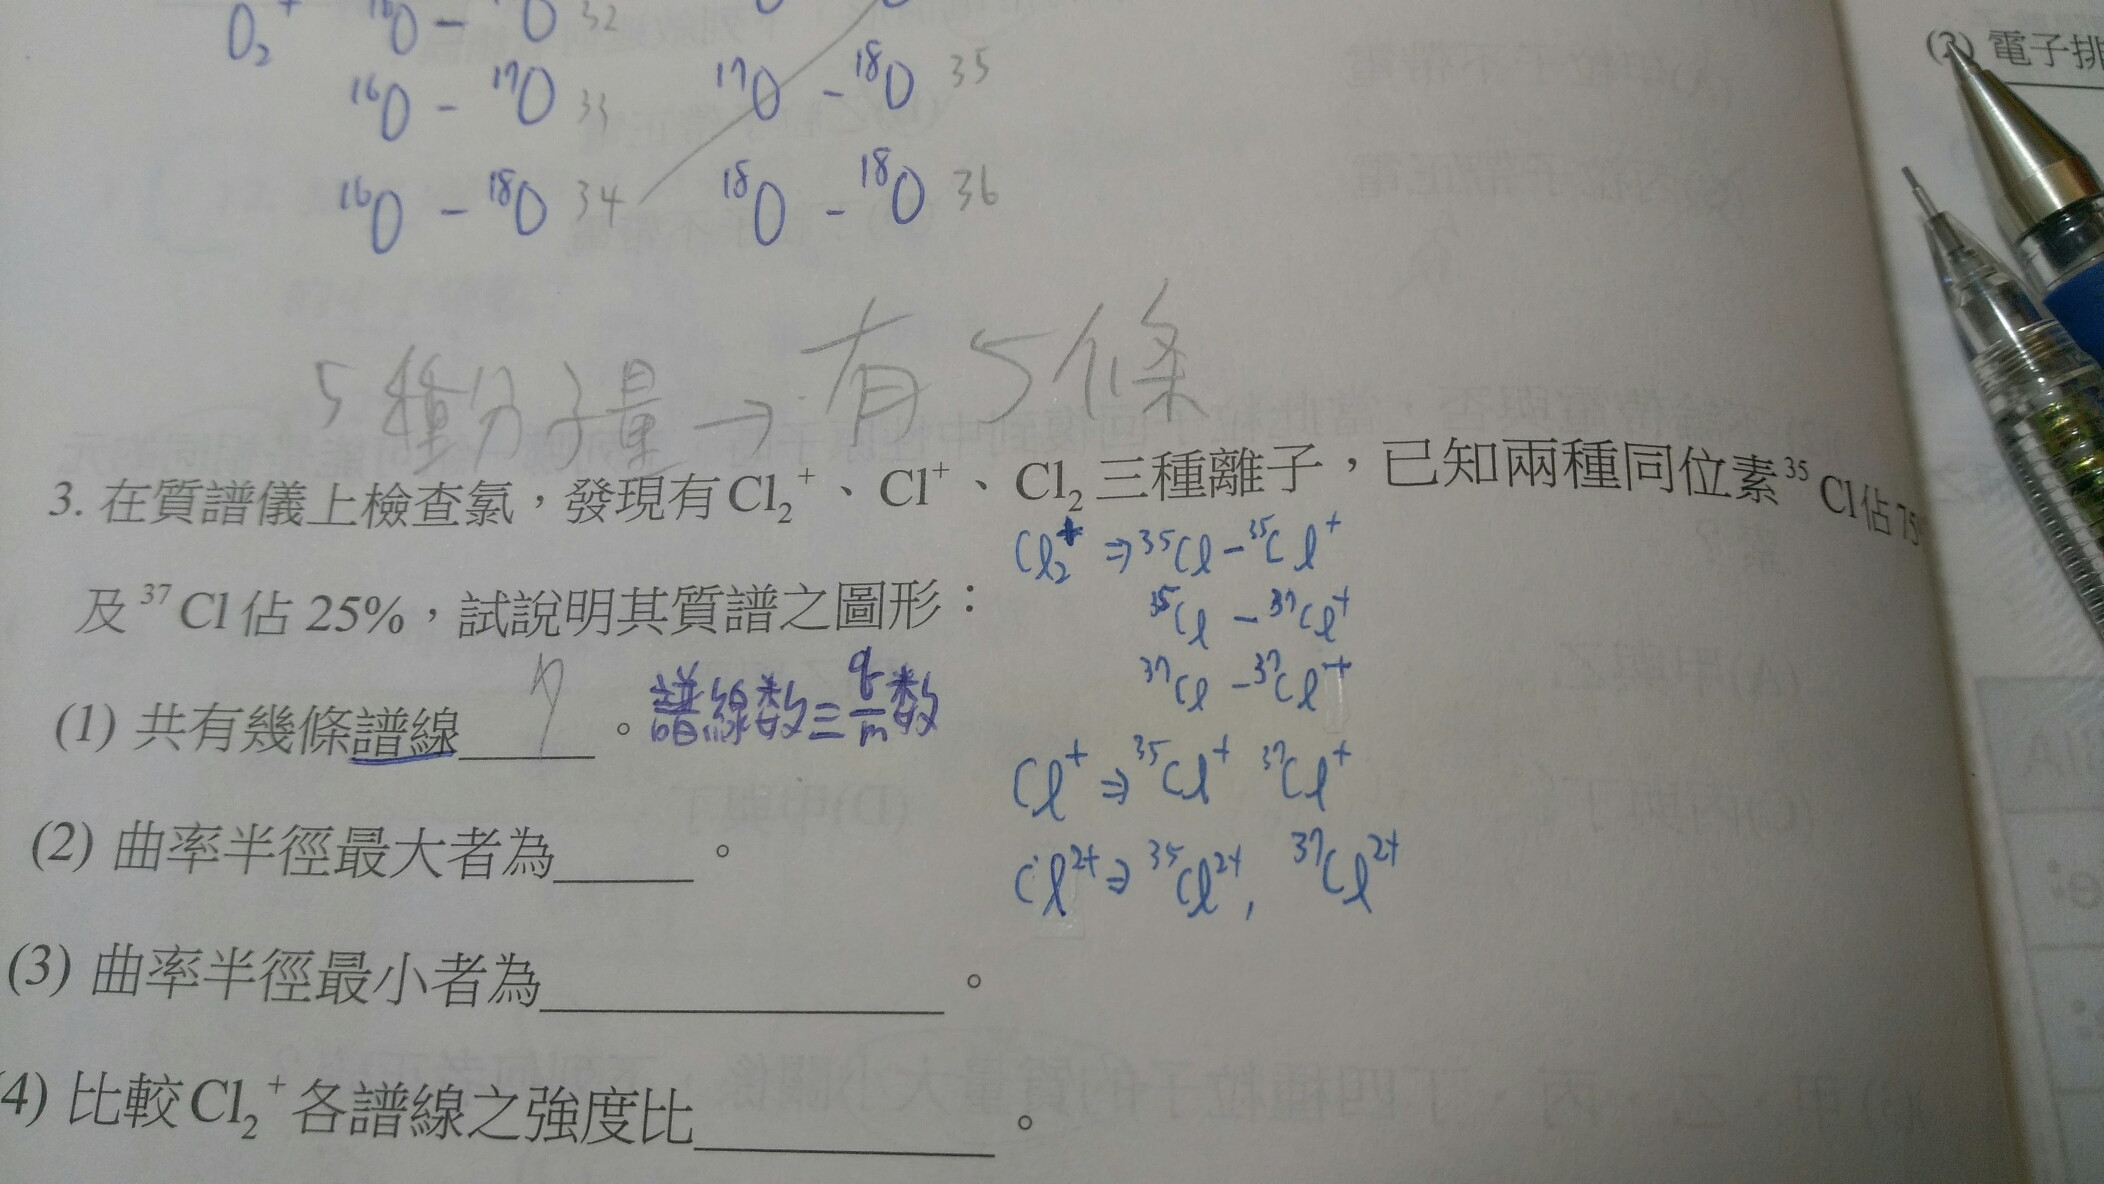 O₂⁺ ¹⁶O - O 32
¹⁶O - ¹⁷O 33 ¹⁷O - ¹⁸O 35
¹⁶O - ¹⁸O 34 ¹⁸O - ¹⁸O 36
5種分子量 → 有5條
3. 在質譜儀上檢查氯，發現有Cl₂⁺、Cl⁺、Cl₂三種離子，已知兩種同位素³⁵Cl佔75
Cl₂⁺ ⇒ ³⁵Cl - ³⁵Cl⁺
及³⁷Cl佔25%，試說明其質譜之圖形：
³⁵Cl - ³⁷Cl⁺
³⁷Cl - ³⁷Cl⁺
(1) 共有幾條譜線 7 。譜線数≡q/m数
Cl⁺ ⇒ ³⁵Cl⁺ ³⁷Cl⁺
(2) 曲率半徑最大者為______。
Cl²⁺ ⇒ ³⁵Cl²⁺, ³⁷Cl²⁺
(3) 曲率半徑最小者為______。
4) 比較Cl₂⁺各譜線之強度比______。
(2) 電子排